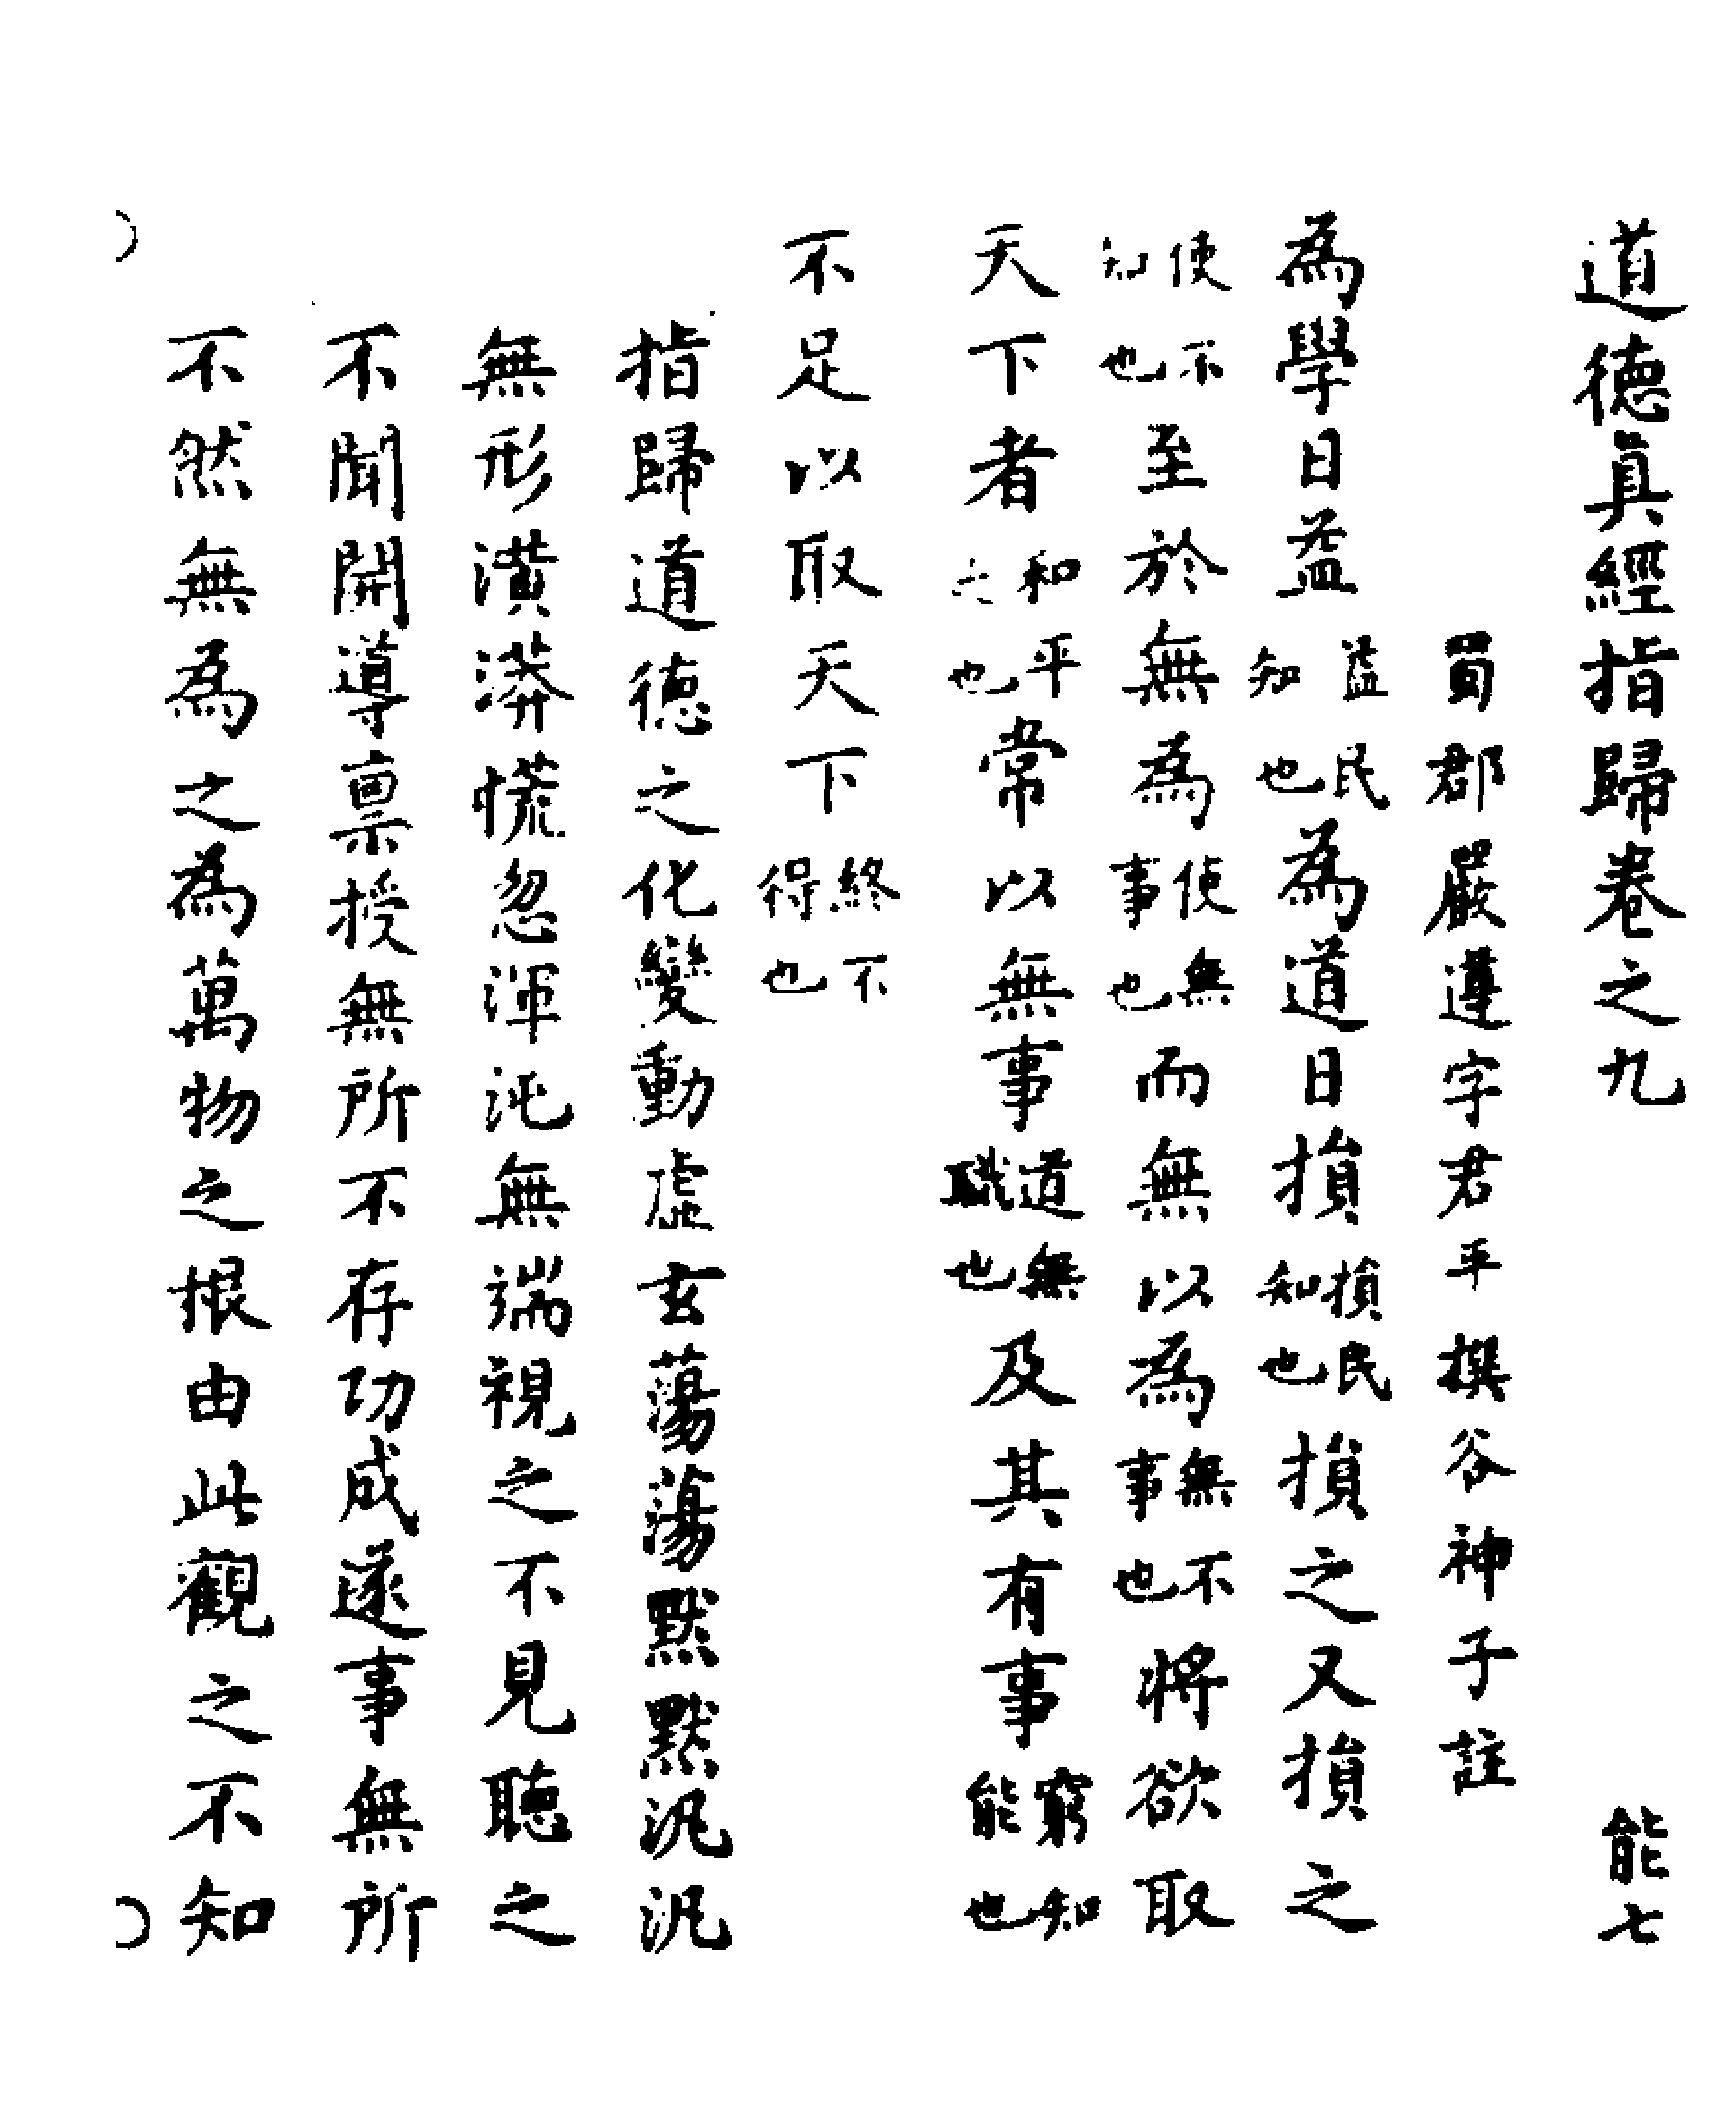 道德真經指歸卷之九 能七
蜀郡嚴遵字君平撰谷神子註
為學日益益民知也為道日損損民知也損之又損之
使不知也至於無為使無事也而無以為無不事也將欲取
天下者和平之也常以無事道無職也及其有事窮知能也
不足以取天下終不得也
指歸道德之化變動虛玄蕩蕩默默汎汎
無形潢漭慌忽渾沌無端視之不見聽之
不聞開導稟授無所不存功成遂事無所
不然無為之為萬物之根由此觀之不知